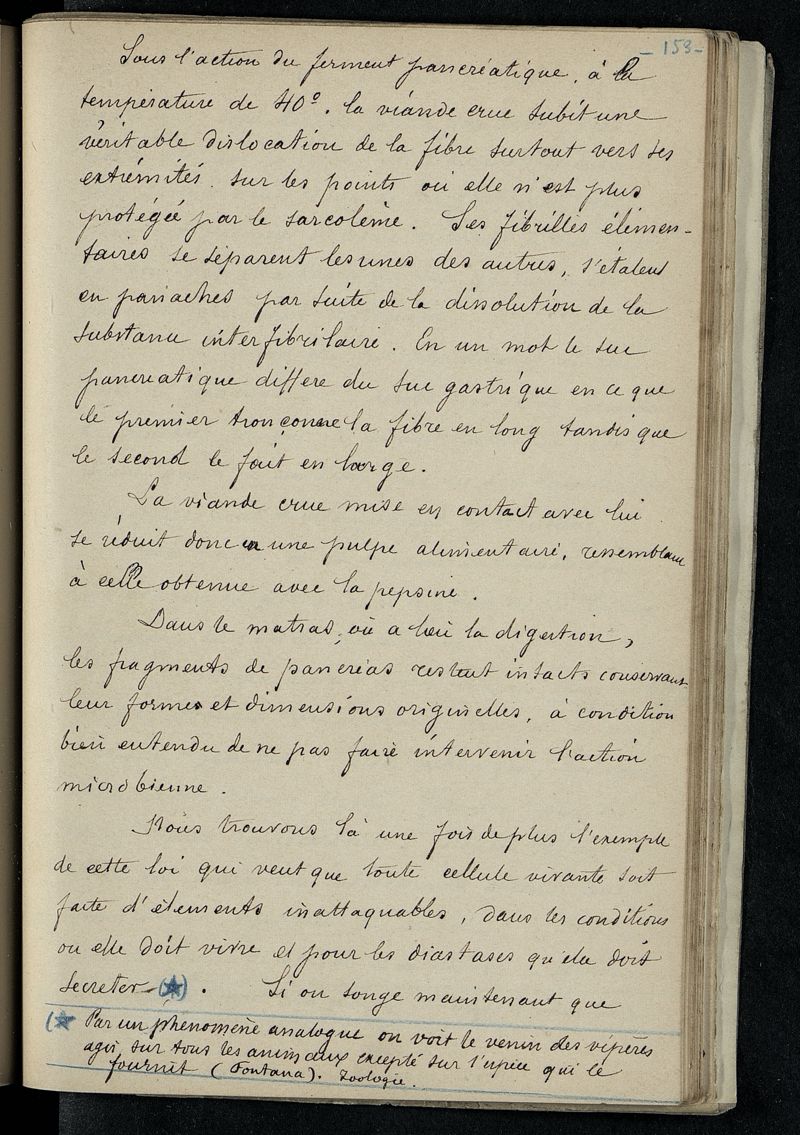 - 153 -
Sous l'action du ferment pancréatique, à la
température de 40°. la viande crue subit une
véritable dislocation de la fibre surtout vers ses
extrémités. sur les points où elle n'est plus
protégée par le sarcolème. Ses fibrilles élémen-
taires se séparent les unes des autres, s'étalent
en panaches par suite de la dissolution de la
substance interfibrilaire. En un mot le suc
pancreatique differe du suc gastrique en ce que
le premier tronçonne la fibre en long tandis que
le second le fait en large.
La viande crue mise en contact avec lui
se réduit donc en une pulpe alimentaire, ressemblant
à celle obtenue avec la pepsine.
Dans le matras, où a lieu la digestion,
les fragments de pancréas restent intacts conservant
leur formes et dimensions originelles, à condition
bien entendu de ne pas faire intervenir l'action
microbienne.
Nous trouvons là une fois de plus l'exemple
de cette loi qui veut que toute cellule vivante soit
faite d'élements inattaquables, dans les conditions
ou elle doit vivre et pour les diastases qu'ele doit
secreter (★). Si on songe maintenant que
(★ Par un phenomène analogue on voit le venin des vipères
agir sur tous les animaux excepté sur l'espèce qui le
fournit (Fontana). Zoologie.